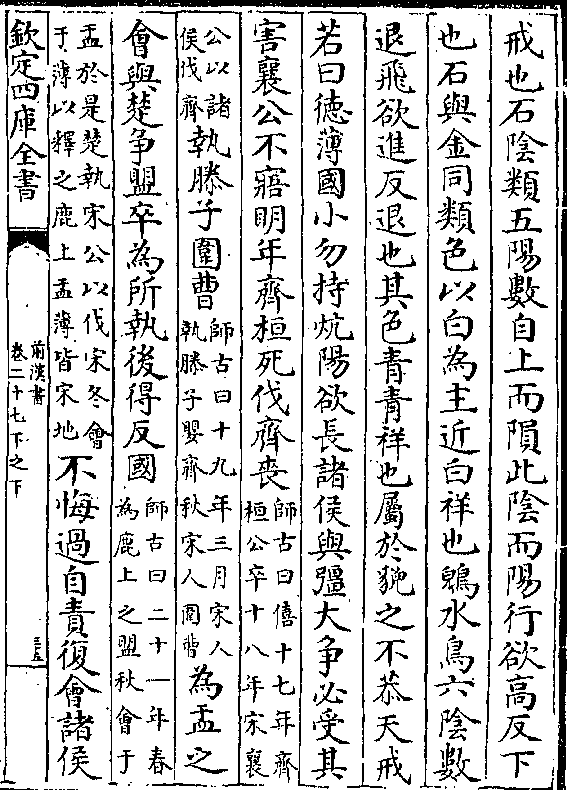 戒也石陰類五陽數自上而隕此陰而陽行欲高反下
也石與金同類色以白為主近白祥也鶂水鳥六陰數
退飛欲進反退也其色青青祥也屬於貌之不恭天戒
若曰徳薄國小勿持炕陽欲長諸侯與彊大争必受其
害襄公不寤明年齊桓死伐齊喪師古曰僖十七年齊桓公卒十八年宋襄
公以諸侯伐齊執滕子圍曹師古曰十九年三月宋人執滕子嬰齊秋宋人圍曹為盂之
會與楚争盟卒為所執後得反國師古曰二十一年春為鹿上之盟秋會于
盂於是楚執宋公以伐宋冬會于薄以釋之鹿上盂薄皆宋地不悔過自責復會諸侯
欽定四庫全書
前漢書
卷二十七下之下